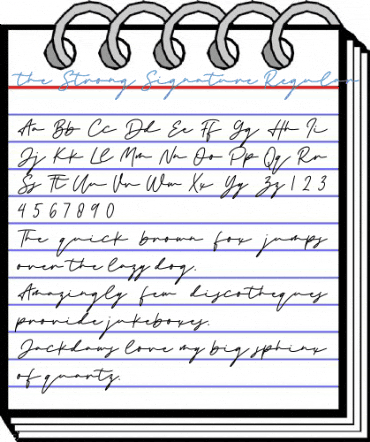 the Strong Signature Regular
Aa Bb Cc Dd Ee Ff Gg Hh Ii
Jj Kk Ll Mm Nn Oo Pp Qq Rr
Ss Tt Uu Vv Ww Xx Yy Zz 1 2 3
4 5 6 7 8 9 0
The quick brown fox jumps
over the lazy dog.
Amazingly few discotheques
provide jukeboxes.
Jackdaws love my big sphinx
of quartz.